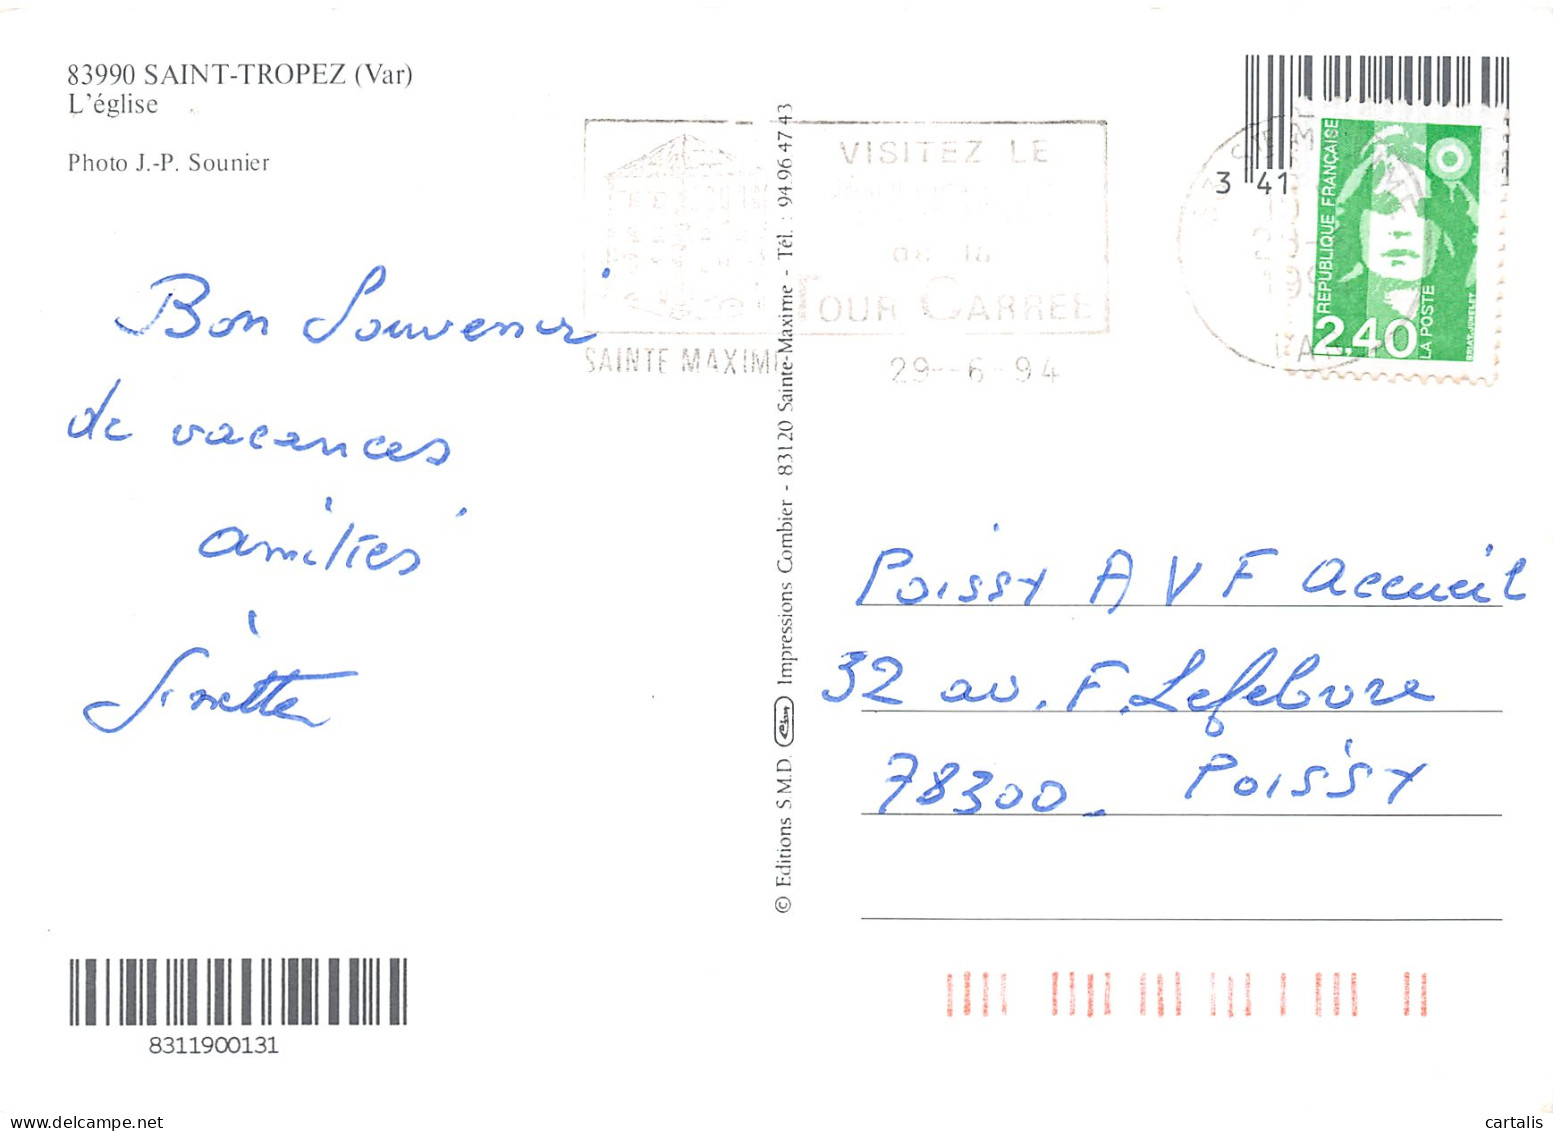 83990 SAINT-TROPEZ (Var)
L'église
Photo J.-P. Sounier
Bon Souvenir
de vacances
amitiés
Ginette
8311900131
© Editions S.M.D. Impressions Combier - 83120 Sainte-Maxime - Tél. : 94 96 47 43
VISITEZ LE
de la
TOUR CARREE
SAINTE MAXIME
29-6-94
3 41
REPUBLIQUE FRANÇAISE
2,40
LA POSTE
Poissy AVF Accueil
32 av. F. Lefebvre
78300 - Poissy
cartalis